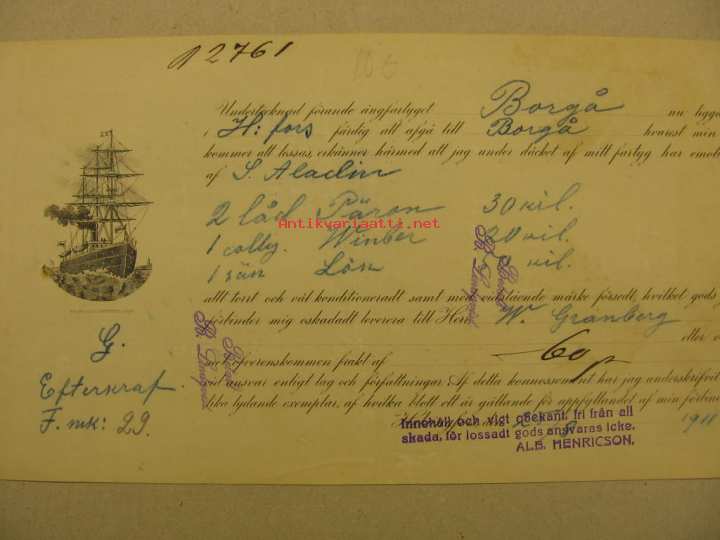 12761
106
Undertecknad förande ångfartyget Borgå nu ligga
i H:fors färdig att afgå till Borgå hvarest min
kommer att lossas, erkänner härmed att jag under däcket af mitt fartyg har
af S. Aladin
2 låd Päron 30 kil.
1 colly. Winber 20 kil.
1 Lön kil.
Antikvariaatti.net
allt torrt och väl konditioneradt samt med vidstående märke försedt, hvilket gods
mig oskadadt leverera till Herr W. Granberg
eller
öfverenskommen frakt af 60 p
ansvar enligt lag och författningar. Af detta konnossement har jag underskrifvit
lika lydande exemplar, af hvilka blott ett är gällande för uppfyllandet af min
1911
G.
Efterkraf
F. mk: 29.
Innehåll och vigt obekant, fri från all
skada, för lossadt gods ansvaras icke.
ALB. HENRICSON.